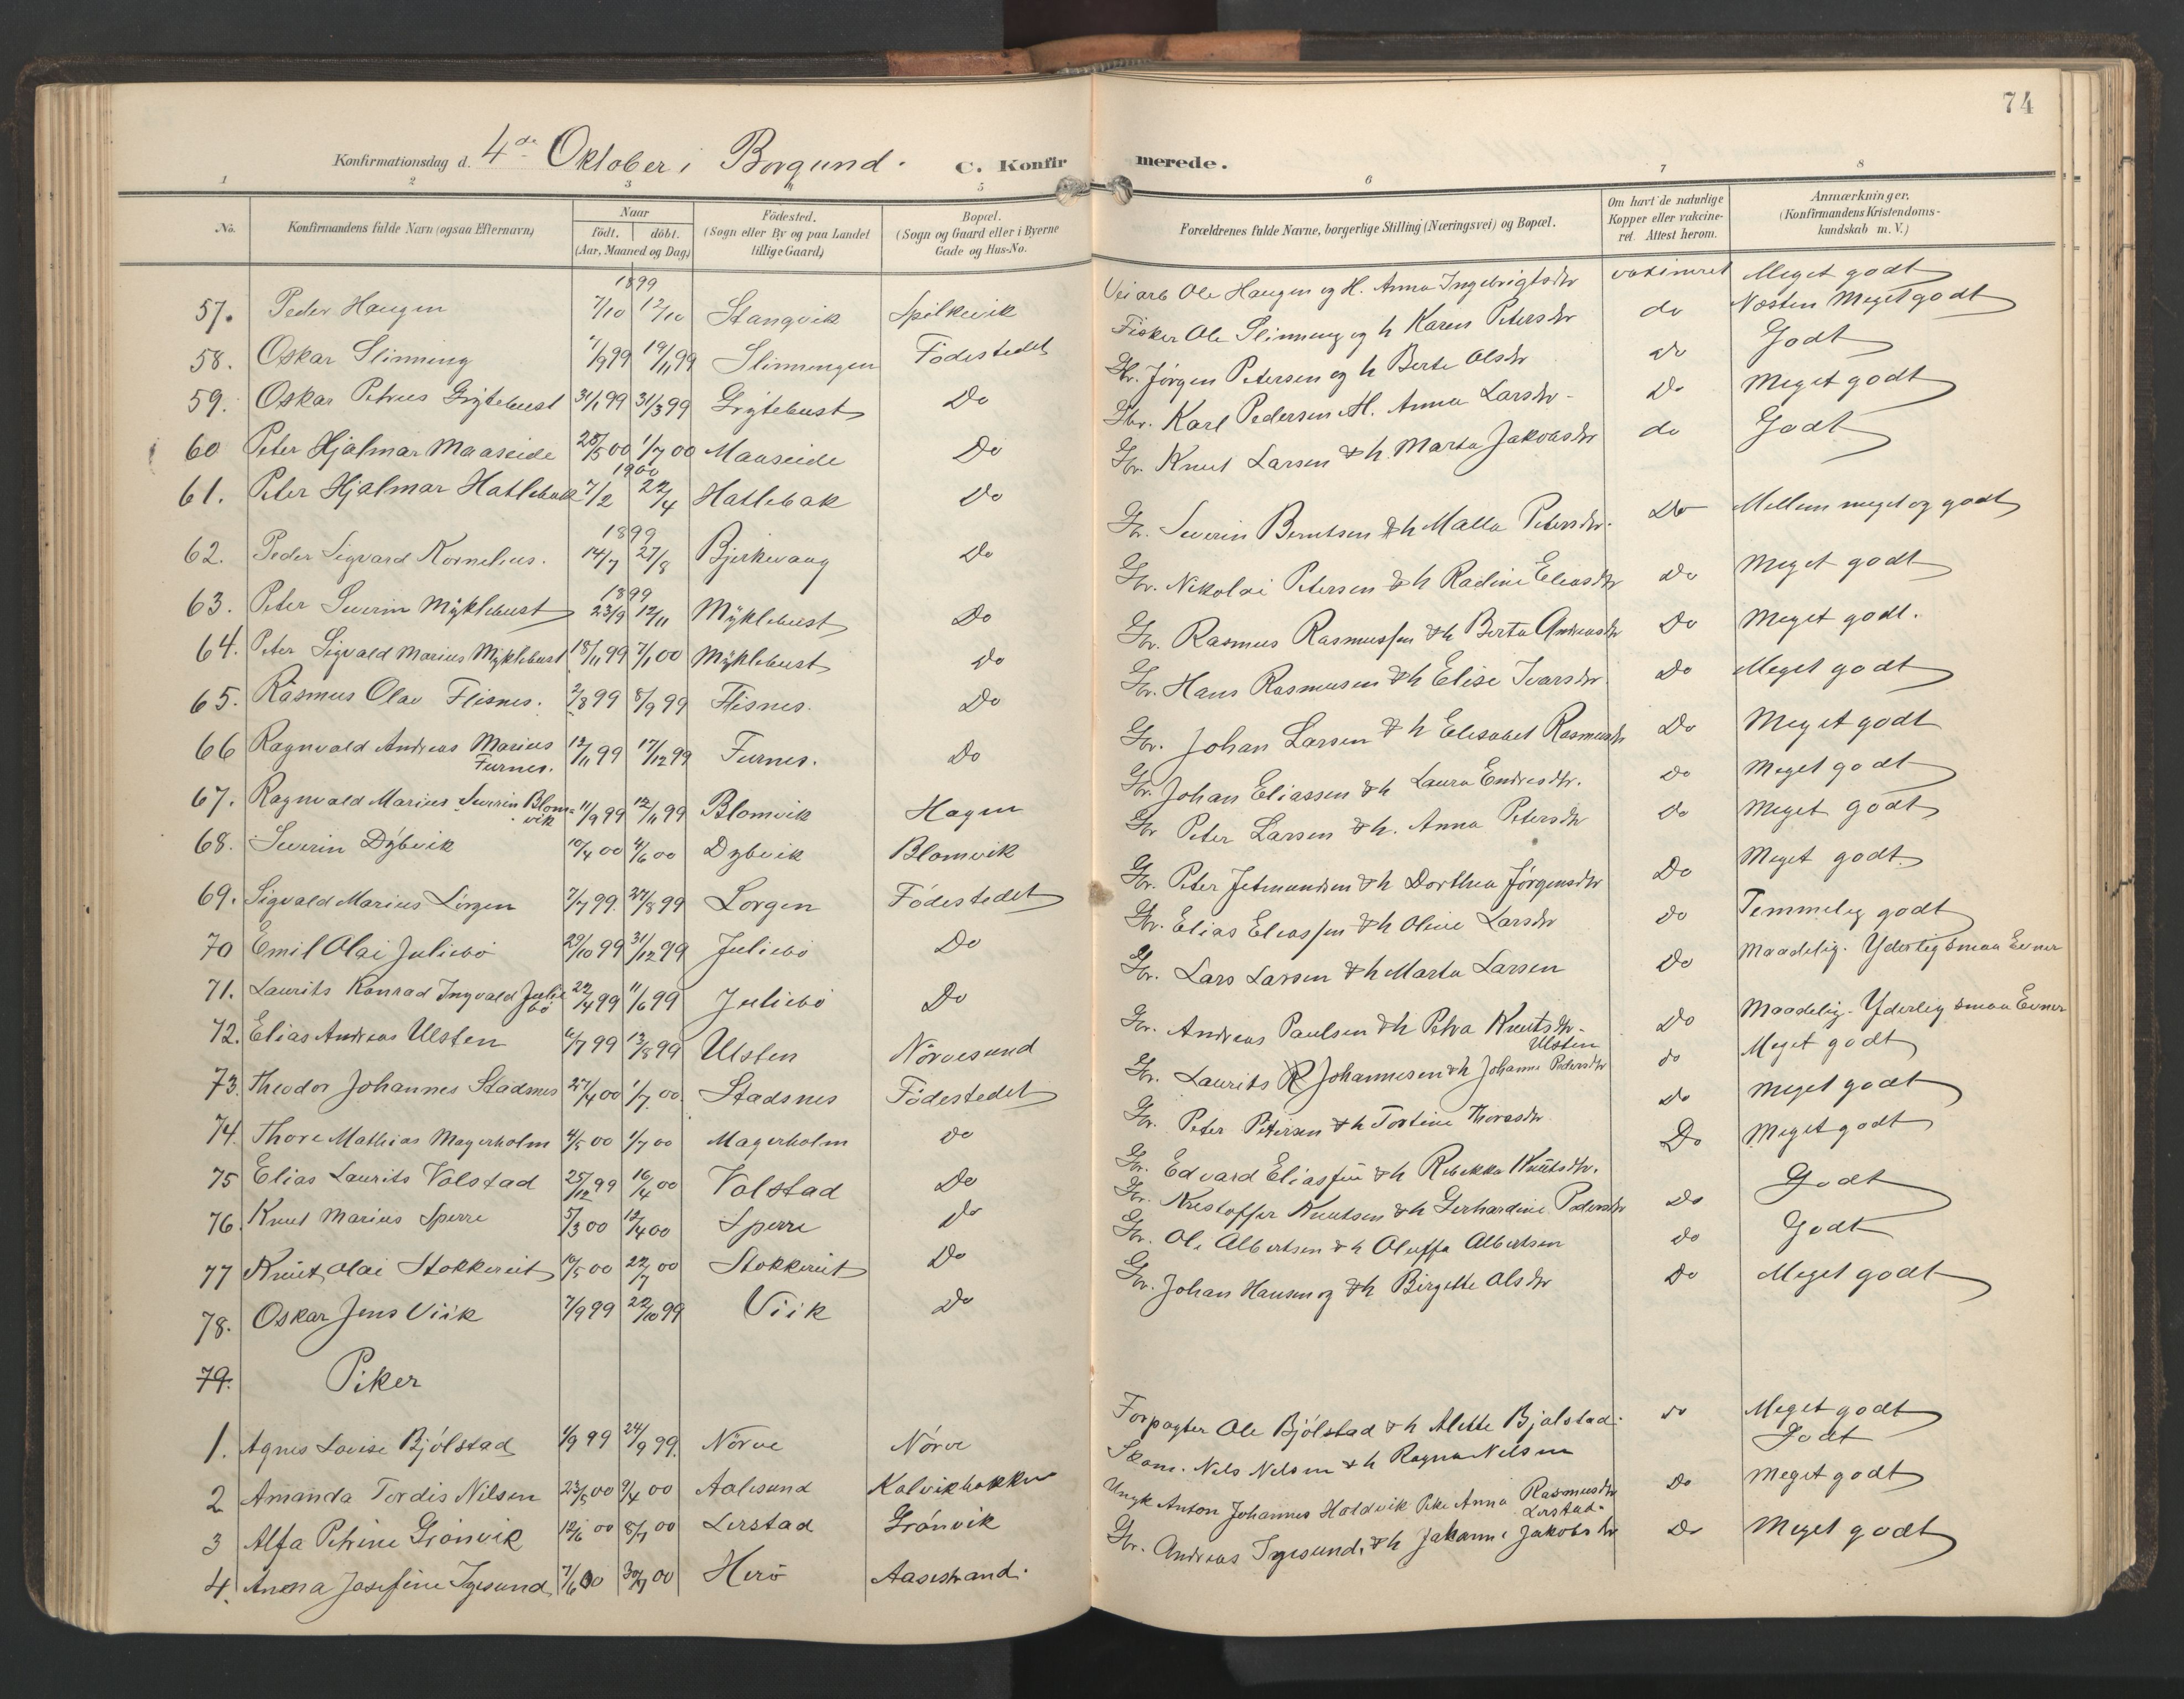 74
Konfirmationsdag d. 4de Oktober i Borgund. C. Konfirmerede.
1 2 3 4 5 6 7 8
No. Konfirmandens fulde Navn (ogsaa Efternavn) Naar födt. döbt. (Aar, Maaned og Dag) Födested. (Sogn eller By og paa Landet tillige Gaard) Bopæl. (Sogn og Gaard eller i Byerne Gade og Hus-No. Forældrenes fulde Navne, borgerlige Stilling (Næringsvei) og Bopæl. Om havt de naturlige Kopper eller vakcineret. Attest herom. Anmærkninger. (Konfirmandens Kristendomskundskab m. V.)
1899
57. Peder Haugen 7/10 12/10 Stangvik Spilkevik Veiarb Ole Haugen og H. Anna Ingebrigtsdtr vaksineret Meget godt
58. Oskar Slinning 7/9 99 19/11 99 Slinningen Födestedet Fisker Ole Slinning og h Karen Petersdtr do Næsten Meget godt
59. Oskar Petrus Grytebust 31/1 99 31/3 99 Grytebust Do Gbr. Jörgen Petersen og h Berte Olsdtr do Godt
60 Peter Hjalmar Maaseide 28/5 00 1/7 00 Maaseide Do Gbr. Karl Pedersen & H. Anna Larsdtr - Do Meget godt
1900
61. Peter Hjalmar Hatlebak 7/2 22/4 Hatlebak Do Gbr. Knut Larsen & h. Marta Jakobsdtr do Godt
1899
62. Peder Sigvard Kornelius. 14/7 27/8 Bjerkevaag Do Gbr. Severin Berntsen & h Malla Petersdtr. Do Mellem meget og godt
1899
63. Peter Severin Myklebust 23/9 12/11 Myklebust Do Gbr. Nikolai Petersen & h Radine Eliasdtr Do Meget godt
64. Peter Sigvald Marius Myklebust 18/11 99 7/1 00 Myklebust Do Gbr. Rasmus Rasmussen & h Berta Andreasdtr Do Meget godt.
65. Rasmus Olav Flisnes. 2/8 99 8/9 99 Flisnes. Do Gbr. Hans Rasmusen & h Elise Ivarsdtr Do Meget godt
66 Ragnvald Andreas Marius Furnes. 12/11 99 17/12 99 Furnes. Do Gbr. Johan Larsen & h Elisabet Rasmusdtr Do Meget godt
67. Ragnvald Marius Severin Blomvik 11/9 99 12/11 99 Blomvik Hagen Gbr. Johan Eliassen & h Laura Endresdtr. Do Meget godt
68. Severin Dybvik 10/4 00 4/6 00 Dybvik Blomvik Gbr Peter Larsen & h. Anna Petersdtr Do Meget godt
69. Sigvald Marius Lörgen 7/7 99. 27/8 99 Lorgen Födestedet Gbr. Peter Jetmundsen & h Dorthea Jörgensdtr Do Meget godt
70 Emil Olai Juliebö 29/10 99 31/12 99 Juliebö Do Gbr. Elias Eliassen & h Oline Larsdtr Do Temmelig godt
71. Laurits Konrad Ingvald Juliebö 22/4 99 11/6 99 Juliebö Do Gbr. Lars Larsen & h Marta Larsen Do Maadelig. Yderlig smaa Evner
72. Elias Andreas Ulsten 6/7 99 13/8 99 Ulsten Nörvesund Gbr. Andreas Paulsen & h Petra Knutsdtr. Ulsten Do Maadelig. Yderlig smaa Evner
73. Theodor Johannes Stadsnes 27/4 00 1/7 00 Stadsnes Födestedet Gbr. Laurits Johannesen & h Johanne Pedersdtr do Meget godt
74. Thore Mathias Magerholm 4/5 00 1/7 00 Magerholm Do Gbr. Peter Petersen & h Tortine Thoresdtr. do Meget godt
75 Elias Laurits Valstad 25/12 99 16/4 00 Valstad Do Gbr. Edvard Eliassen & h Rebekka Knutsdtr. Do Meget godt
76. Knut Marius Sperre 5/3 00 12/4 00 Sperre Do Gbr. Kristoffer Knutsen & h Gerhardine Pedersdtr Do Godt
77 Knut Olai Stokkereit 10/5 00 22/7 00 Stokkereit Do Gbr. Ole Albertsen & h Oluffa Albertsen Do Godt
78. Oskar Jens Viik 7/9 99 22/10 99 Viik Do Gbr. Johan Hansen og & h Birgitte Olsdtr Do Meget godt
79. Piker
1. Agnes Lovise Bjölstad 1/9 99 24/9 99. Nörve Nörve Forpagter Ole Bjölstad & h Alette Bjölstad. do Meget godt
2 Amanda Tordis Nilsen 23/5 00 9/4 00 Aalesund Kalvikbakken Skom. Nils Nilsen & h Ragna Nilsen Godt
3 Alfa Petrine Grönvik 12/6 00 8/7 00 Lerstad Grönvik Ungk Anton Johannes Holdvik Pike Anna Rasmusdtr Lerstad. Do Meget godt
4. Anna Josefine Igesund 7/6 00 30/7 00 Herö Aasestrand. Gbr. Andreas Igesund. & h Jakanne Jakobsdtr Do Meget godt